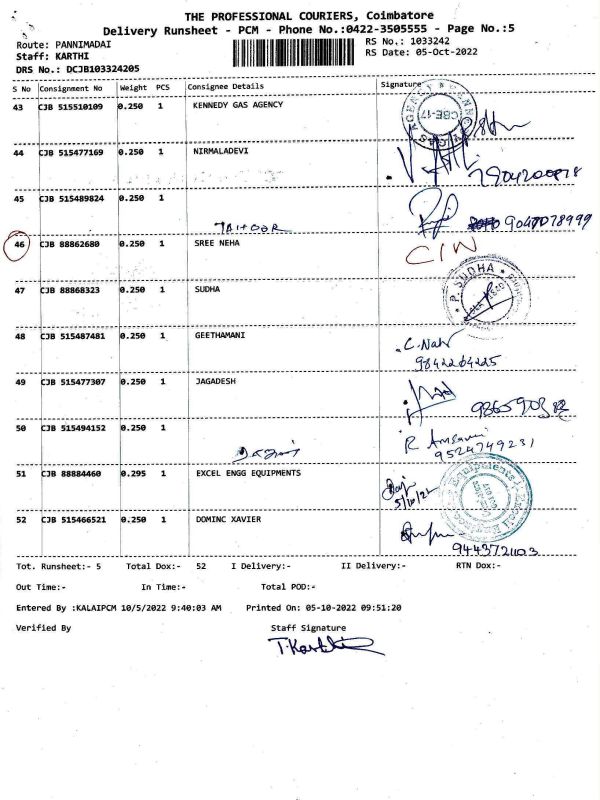 THE PROFESSIONAL COURIERS, Coimbatore
Delivery Runsheet - PCM - Phone No.:0422-3505555 - Page No.:5
Route: PANNIMADAI
RS No.: 1033242
Staff: KARTHI
RS Date: 05-Oct-2022
DRS No.: DCJB103324205
S No Consignment No Weight PCS Consignee Details Signature
43 CJB 515510109 0.250 1 KENNEDY GAS AGENCY
CBE-17
44 CJB 515477169 0.250 1 NIRMALADEVI
45 CJB 515489824 0.250 1
9047078999
46 CJB 88862680 0.250 1 SREE NEHA
47 CJB 88868323 0.250 1 SUDHA
P. SUDHA
48 CJB 515487481 0.250 1 GEETHAMANI
9842264225
49 CJB 515477307 0.250 1 JAGADESH
50 CJB 515494152 0.250 1
9524749231
51 CJB 88884460 0.295 1 EXCEL ENGG EQUIPMENTS
5/10/22
52 CJB 515466521 0.250 1 DOMINC XAVIER
9443721103
Tot. Runsheet:- 5 Total Dox:- 52 I Delivery:- II Delivery:- RTN Dox:-
Out Time:- In Time:- Total POD:-
Entered By :KALAIPCM 10/5/2022 9:40:03 AM Printed On: 05-10-2022 09:51:20
Verified By Staff Signature
T.Karthi